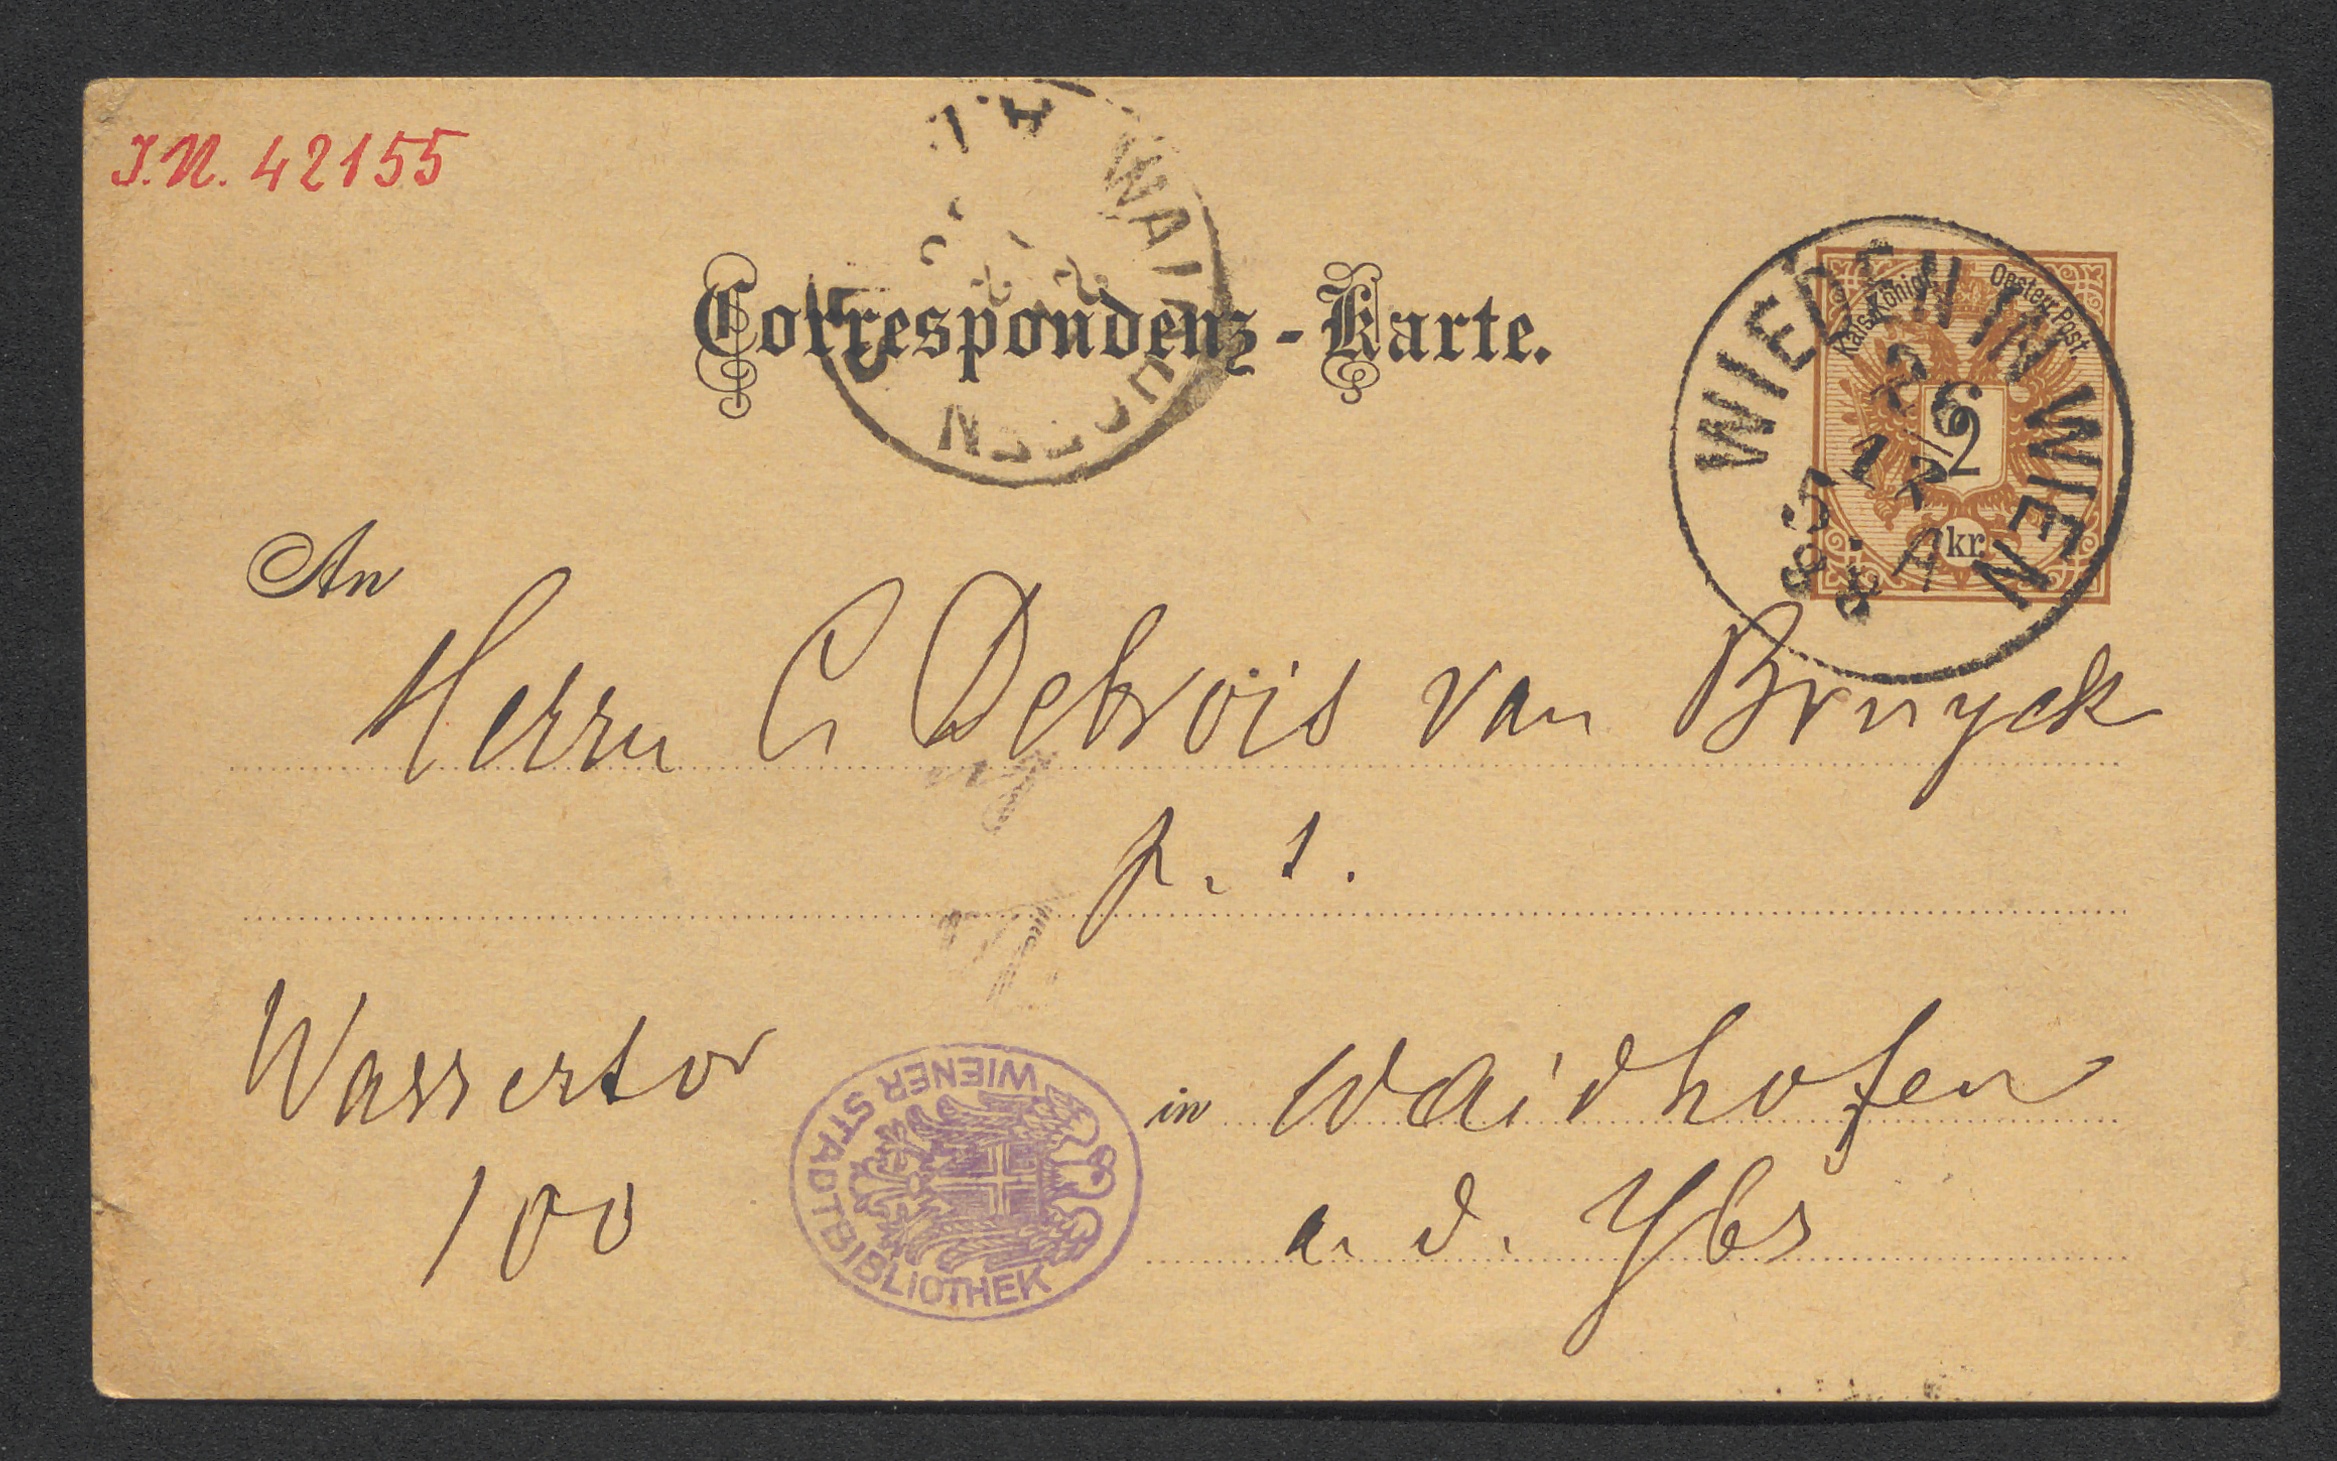 J.N. 42155
Correspondenz-Karte.
Kais. Königl. Oesterr. Post.
2
kr.
WIEDEN IN WIEN
26
12
WAI
An
Herrn C Debrois van Bruyck
in Waidhofen
a. d. Ybs
Wassertor
100
WIENER STADTBIBLIOTHEK